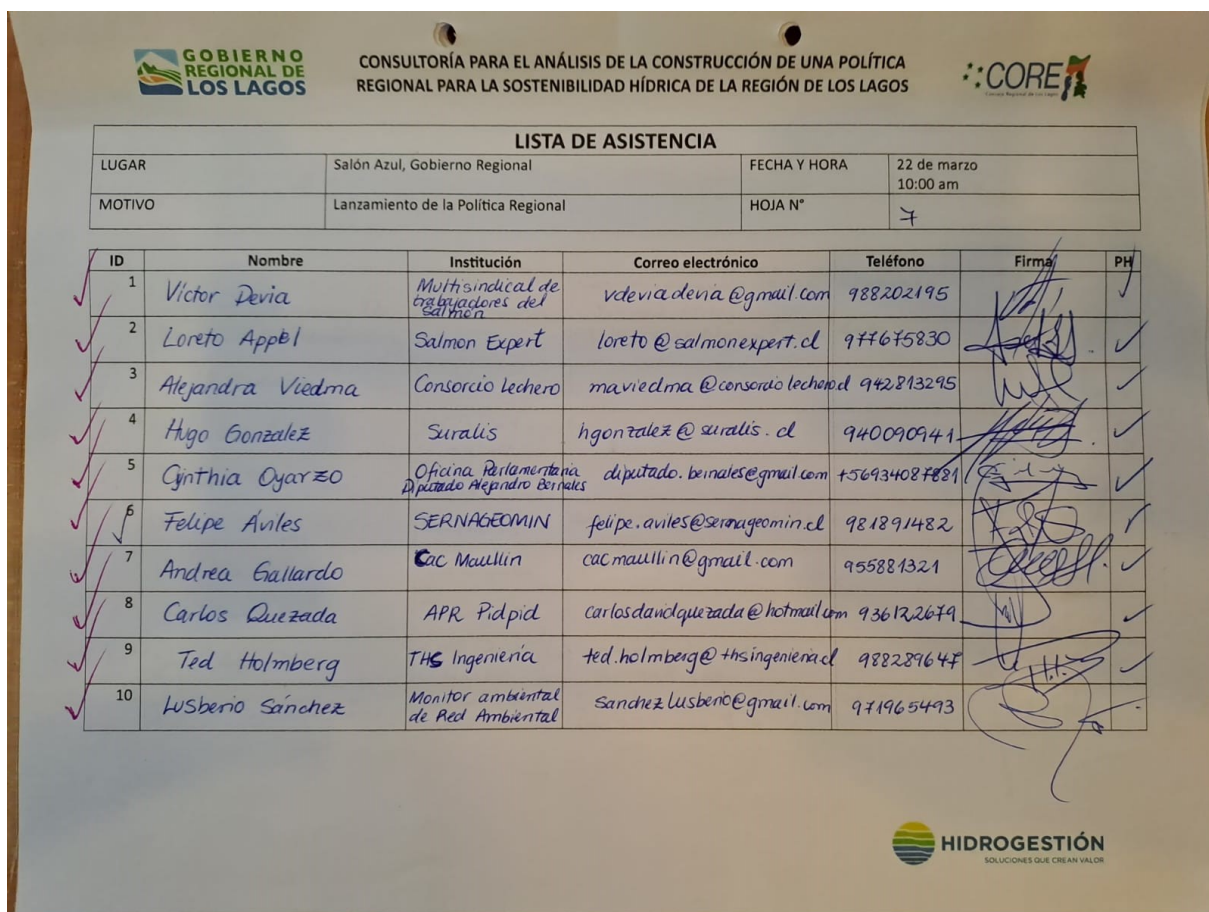 GOBIERNO
REGIONAL DE
LOS LAGOS
CONSULTORÍA PARA EL ANÁLISIS DE LA CONSTRUCCIÓN DE UNA POLÍTICA
REGIONAL PARA LA SOSTENIBILIDAD HÍDRICA DE LA REGIÓN DE LOS LAGOS
CORE
LISTA DE ASISTENCIA
LUGAR Salón Azul, Gobierno Regional FECHA Y HORA 22 de marzo
10:00 am
MOTIVO Lanzamiento de la Política Regional HOJA N° 7
ID Nombre Institución Correo electrónico Teléfono Firma PH
1 Víctor Devia Multisindical de trabajadores del salmón vdeviadevia@gmail.com 988202195
2 Loreto Appel Salmon Expert loreto@salmonexpert.cl 977675830
3 Alejandra Viedma Consorcio Lechero maviedma@consorciolechero.cl 942813295
4 Hugo Gonzalez Suralis hgonzalez@suralis.cl 940090941
5 Cynthia Oyarzo Oficina Parlamentaria Diputado Alejandro Bernales diputado.bernales@gmail.com +56934087881
6 Felipe Áviles SERNAGEOMIN felipe.aviles@sernageomin.cl 981891482
7 Andrea Gallardo Cac Maullin cacmaullin@gmail.com 955881321
8 Carlos Quezada APR Pidpid carlosdavidquezada@hotmail.com 936122679
9 Ted Holmberg THS Ingeniería ted.holmberg@thsingenieria.cl 988289647
10 Lusberio Sánchez Monitor ambiental de Red Ambiental Sanchezlusberio@gmail.com 971965493
HIDROGESTIÓN
SOLUCIONES QUE CREAN VALOR